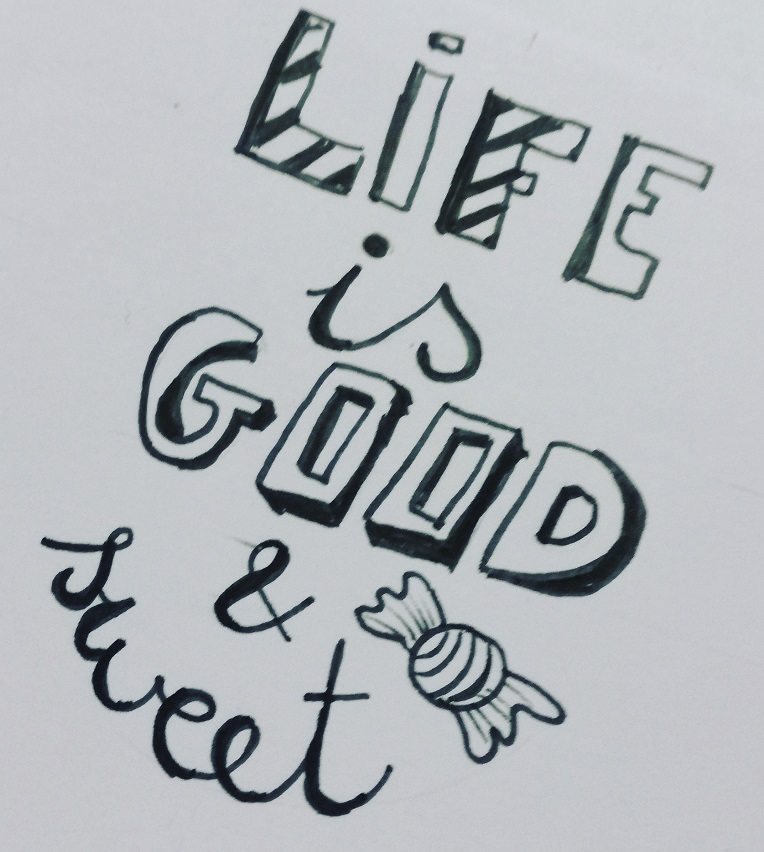 LiFE
is
GOOD
&
sweet